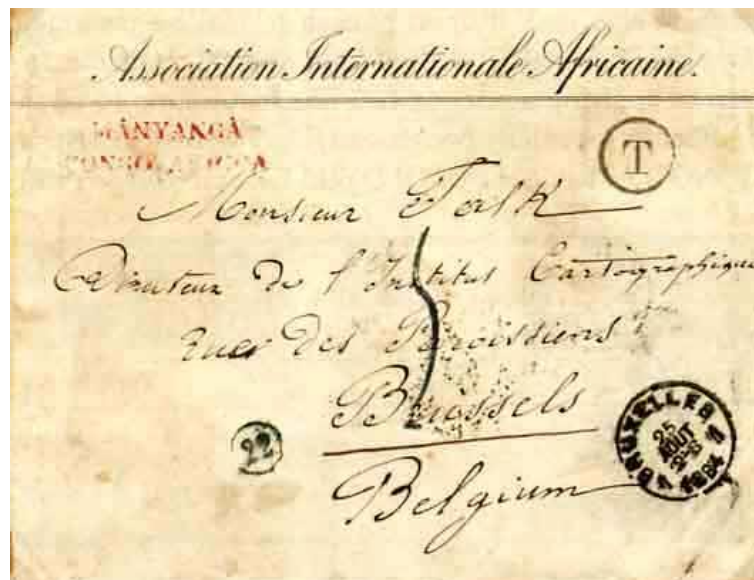 Association Internationale Africaine.
MANYANGA
CONGO AFRICA
T
Monsieur Falk
Directeur de l'Institut Cartographique
Rue des Paroissiens
Brussels
22
BRUXELLES 1
25
AOUT
1884
Belgium